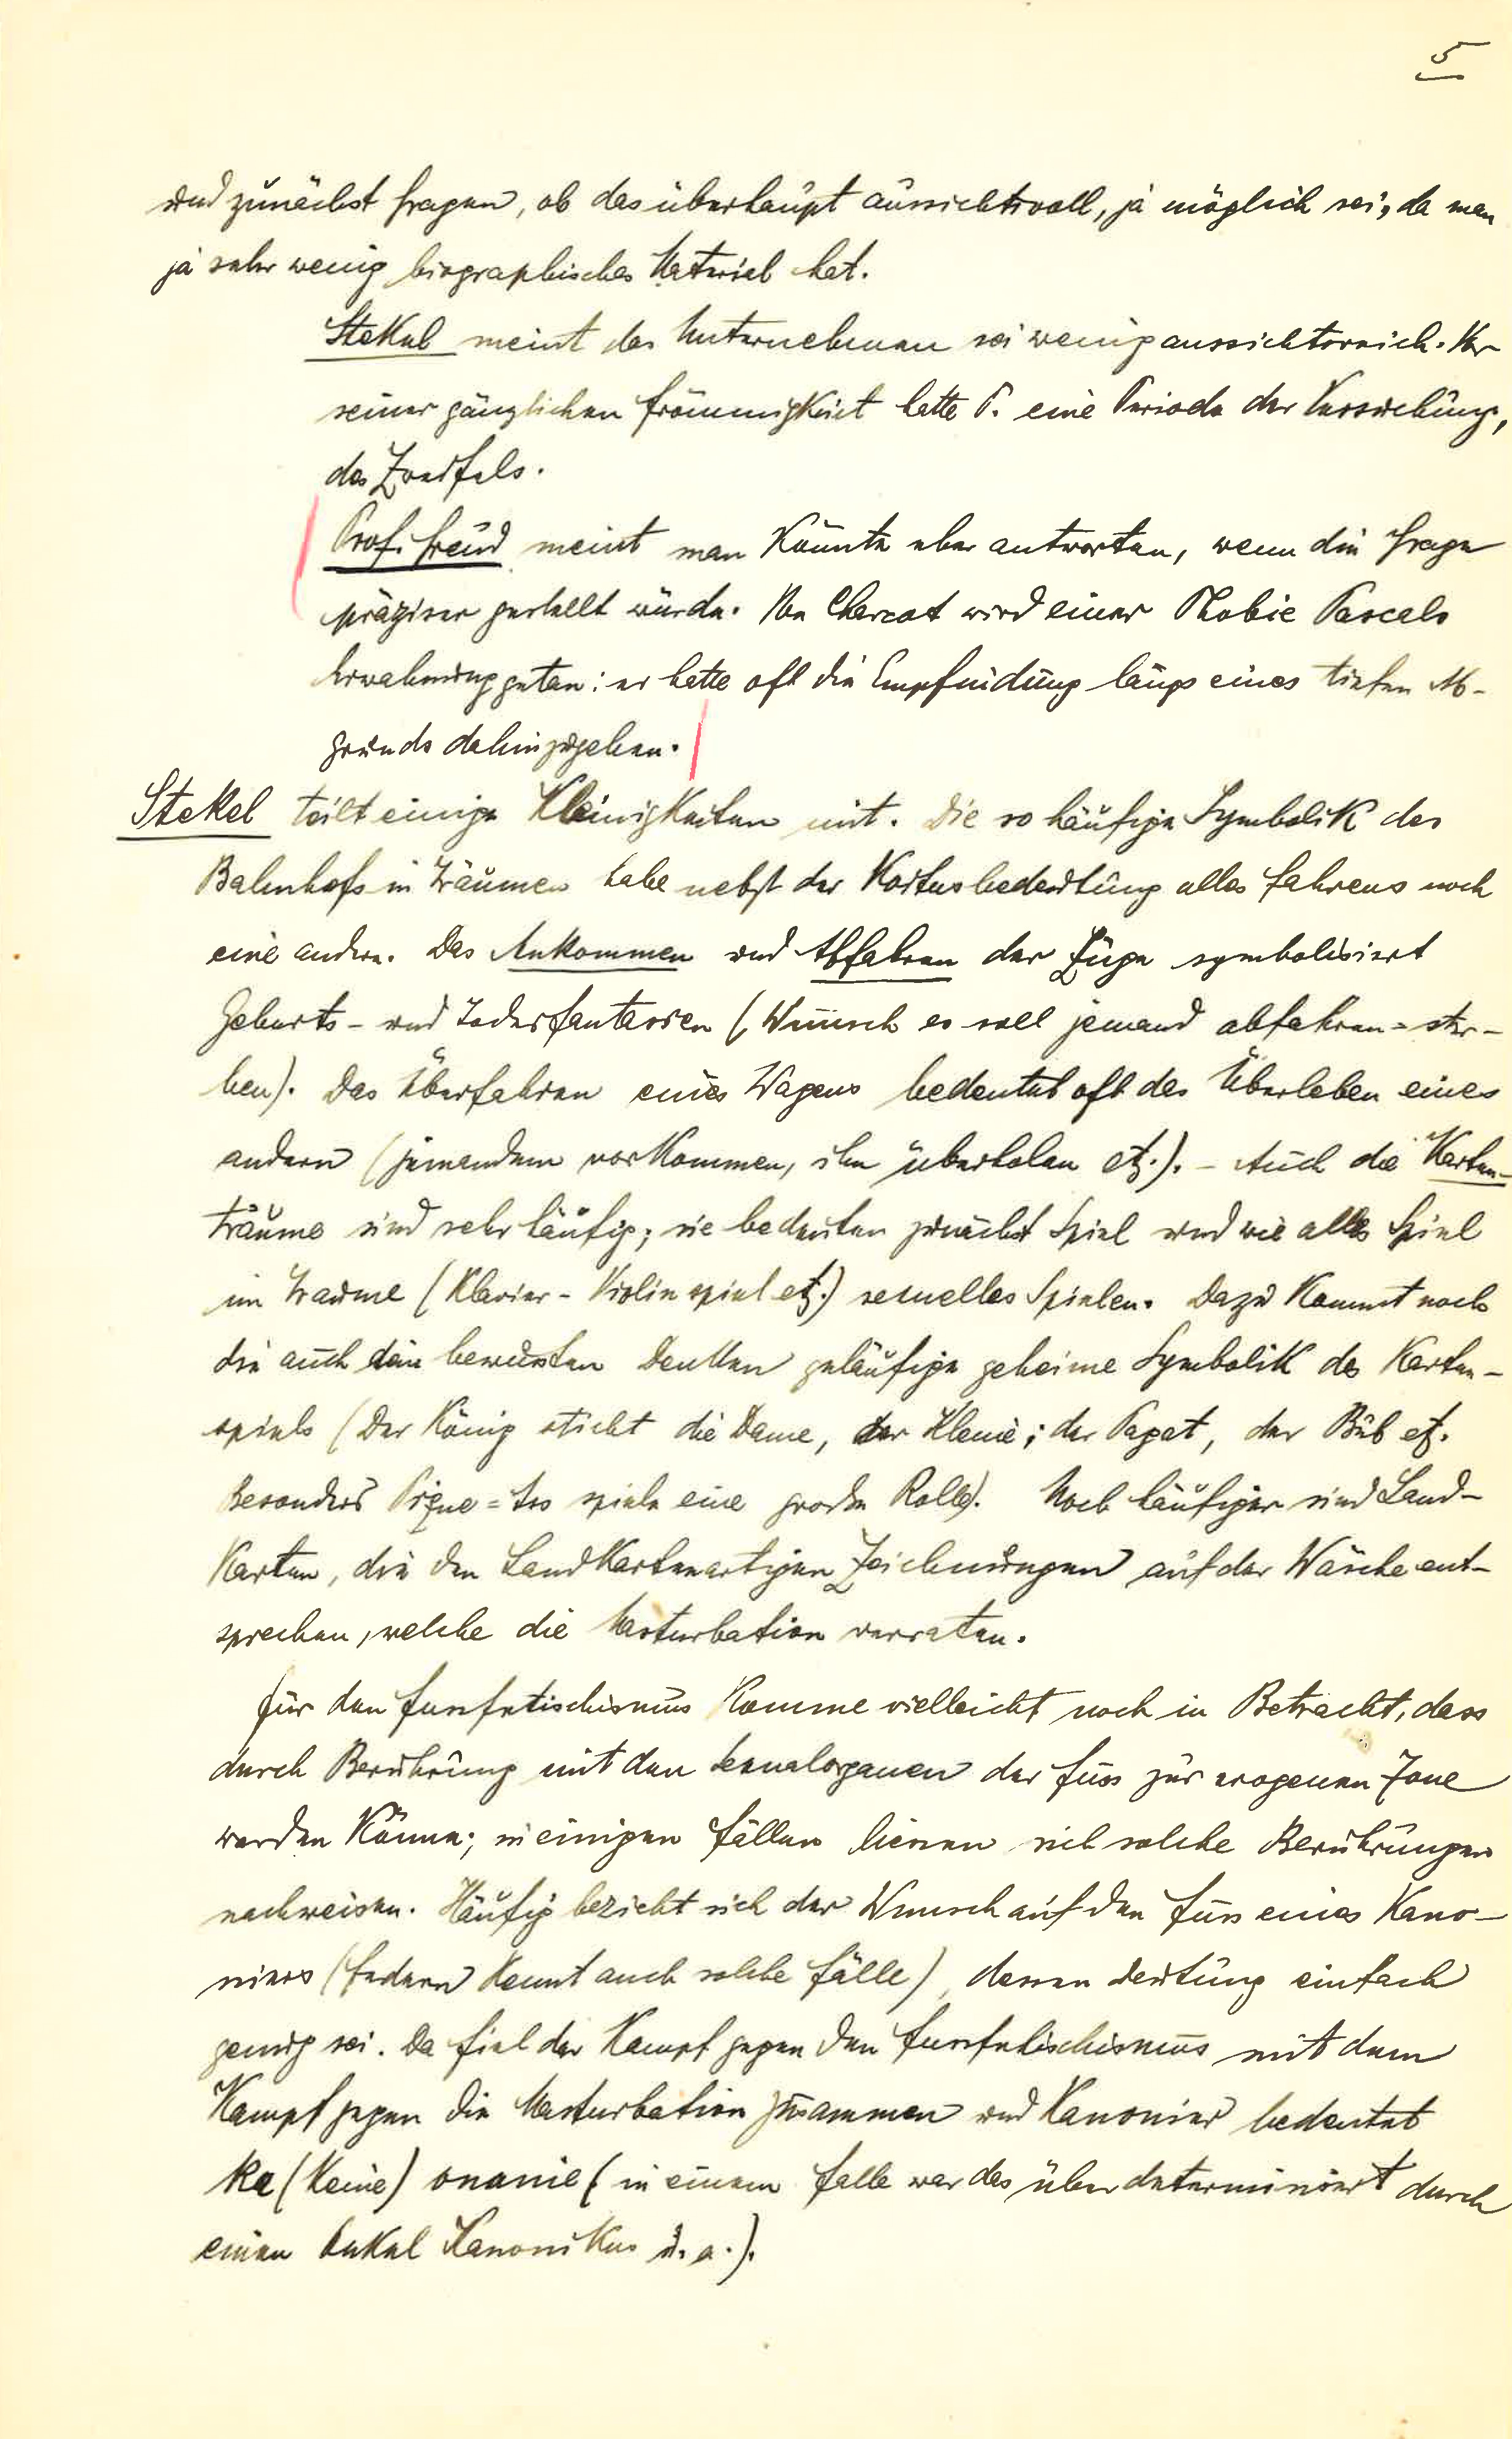 5
und zunächst fragen, ob das überhaupt aussichtsvoll, ja möglich sei, da man
ja sehr wenig biographisches Material hat.
Stekel meint das Unternehmen sei wenig aussichtsreich. Vor
seiner gänzlichen Frömmigkeit hatte P. eine Periode der Versuchung,
des Zweifels.
Prof. Freud meint man könnte eher antworten, wenn die Frage
präziser gestellt würde. Von Charcot wird einer Phobie Pascals
Erwähnung getan: er hatte oft die Empfindung längs eines tiefen Ab-
grunds dahinzugehen.
Stekel teilt einige Kleinigkeiten mit. Die so häufige Symbolik des
Bahnhofs in Träumen habe nebst der Koitusbedeutung alles Fahrens noch
eine andere. Das Ankommen und Abfahren der Züge symbolisiert
Geburts- und Todesfantasien (Wunsch es soll jemand abfahren = ster-
ben). Das Überfahren eines Wagens bedeutet oft das Überleben eines
andern (jemandem vorkommen, ihn überholen etz.). - Auch die Karten-
träume sind sehr häufig; sie bedeuten zunächst Spiel und wie alles Spiel
im Traume (Klavier- Violinspiel etz.) sexuelles Spielen. Dazu kommt noch
die auch dem bewussten Denken geläufige geheime Symbolik des Karten-
spiels (Der König sticht die Dame, der Kleine; der Pagat, der Bub etz.
Besonders Pique = As spiele eine grosse Rolle). Noch häufiger sind Land-
karten, die den Landkartenartigen Zeichnungen auf der Wäsche ent-
sprechen, welche die Masturbation verraten.
Für den Fussfetischismus komme vielleicht noch in Betracht, dass
durch Berührung mit den Sexualorganen der Fuss zur erogenen Zone
werden könne; in einigen Fällen liessen sich solche Berührungen
nachweisen. Häufig bezieht sich der Wunsch auf den Fuss eines Kano-
niers (Federn kennt auch solche Fälle), dessen Deutung einfach
genug sei. Da fiel der Kampf gegen den Fussfetischismus mit dem
Kampf gegen die Masturbation zusammen und Kanonier bedeutet
Ka (Keine) onanie (in einem Falle war das überdeterminiert durch
einen Onkel Kanonikus u. a.).